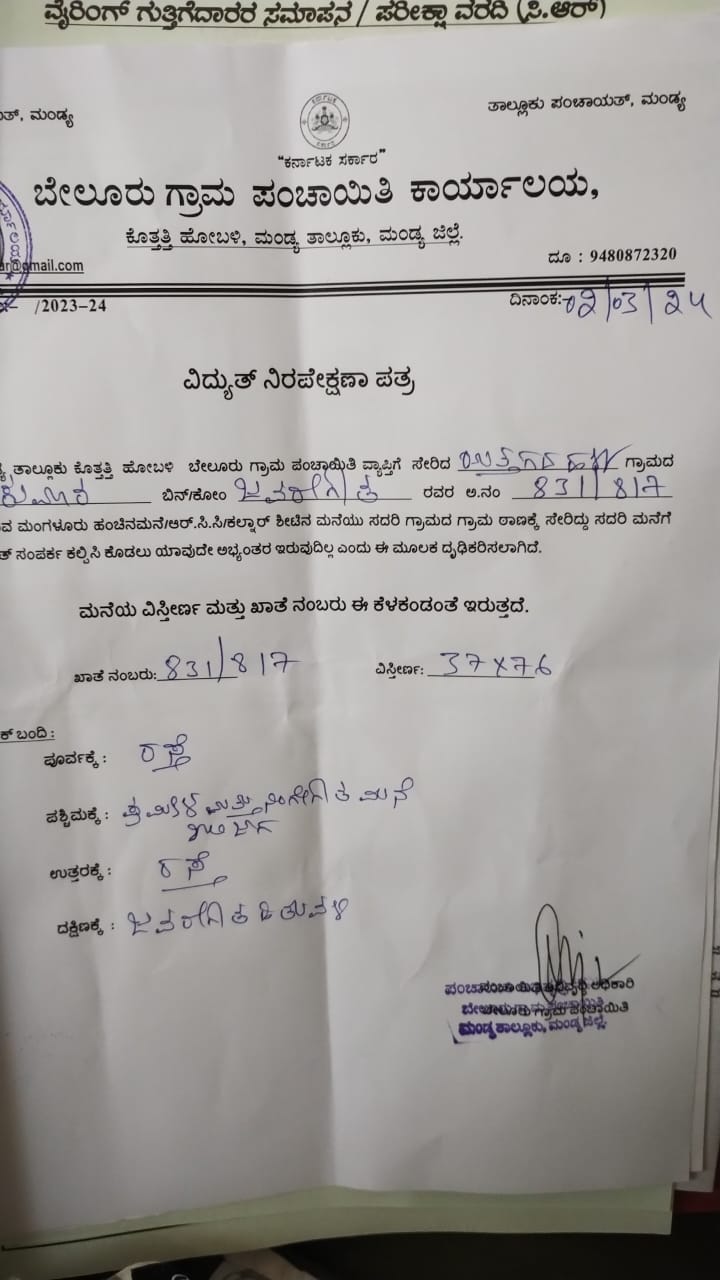 ವೈರಿಂಗ್ ಗುತ್ತಿಗೆದಾರರ ಸಮಾಪನ / ಪರೀಕ್ಷಾ ವರದಿ (ಸಿ.ಆರ್)
ತಾಲ್ಲೂಕು ಪಂಚಾಯತ್, ಮಂಡ್ಯ
ಮಂಡ್ಯ
"ಕರ್ನಾಟಕ ಸರ್ಕಾರ"
ಬೇಲೂರು ಗ್ರಾಮ ಪಂಚಾಯಿತಿ ಕಾರ್ಯಾಲಯ,
ಕೊತ್ತತ್ತಿ ಹೋಬಳಿ, ಮಂಡ್ಯ ತಾಲ್ಲೂಕು, ಮಂಡ್ಯ ಜಿಲ್ಲೆ.
@gmail.com
ದೂ : 9480872320
/2023-24
ದಿನಾಂಕ:- 02/03/24
ವಿದ್ಯುತ್ ನಿರಪೇಕ್ಷಣಾ ಪತ್ರ
ತಾಲ್ಲೂಕು ಕೊತ್ತತ್ತಿ ಹೋಬಳಿ ಬೇಲೂರು ಗ್ರಾಮ ಪಂಚಾಯಿತಿ ವ್ಯಾಪ್ತಿಗೆ ಸೇರಿದ ಗ್ರಾಮದ
ಬಿನ್/ಕೋಂ ಜವರೇಗೌಡ ರವರ ಅ.ನಂ 831/817
ಮಂಗಳೂರು ಹಂಚಿನಮನೆ/ಆರ್.ಸಿ.ಸಿ/ಕಲ್ನಾರ್ ಶೀಟಿನ ಮನೆಯು ಸದರಿ ಗ್ರಾಮದ ಗ್ರಾಮ ಠಾಣಕ್ಕೆ ಸೇರಿದ್ದು ಸದರಿ ಮನೆಗೆ
ಸಂಪರ್ಕ ಕಲ್ಪಿಸಿ ಕೊಡಲು ಯಾವುದೇ ಅಭ್ಯಂತರ ಇರುವುದಿಲ್ಲ ಎಂದು ಈ ಮೂಲಕ ದೃಢಿಕರಿಸಲಾಗಿದೆ.
ಮನೆಯ ವಿಸ್ತೀರ್ಣ ಮತ್ತು ಖಾತೆ ನಂಬರು ಈ ಕೆಳಕಂಡಂತೆ ಇರುತ್ತದೆ.
ಖಾತೆ ನಂಬರು: 831/817 ವಿಸ್ತೀರ್ಣ: 37x76
ಬಂದಿ :
ಪೂರ್ವಕ್ಕೆ : ರಸ್ತೆ
ಪಶ್ಚಿಮಕ್ಕೆ : ಮತ್ತು ಮನೆ
ಉತ್ತರಕ್ಕೆ : ರಸ್ತೆ
ದಕ್ಷಿಣಕ್ಕೆ : ಜವರೇಗೌಡ
ಬೇಲೂರು ಗ್ರಾಮ ಪಂಚಾಯಿತಿ
ಮಂಡ್ಯ ತಾಲ್ಲೂಕು, ಮಂಡ್ಯ ಜಿಲ್ಲೆ.